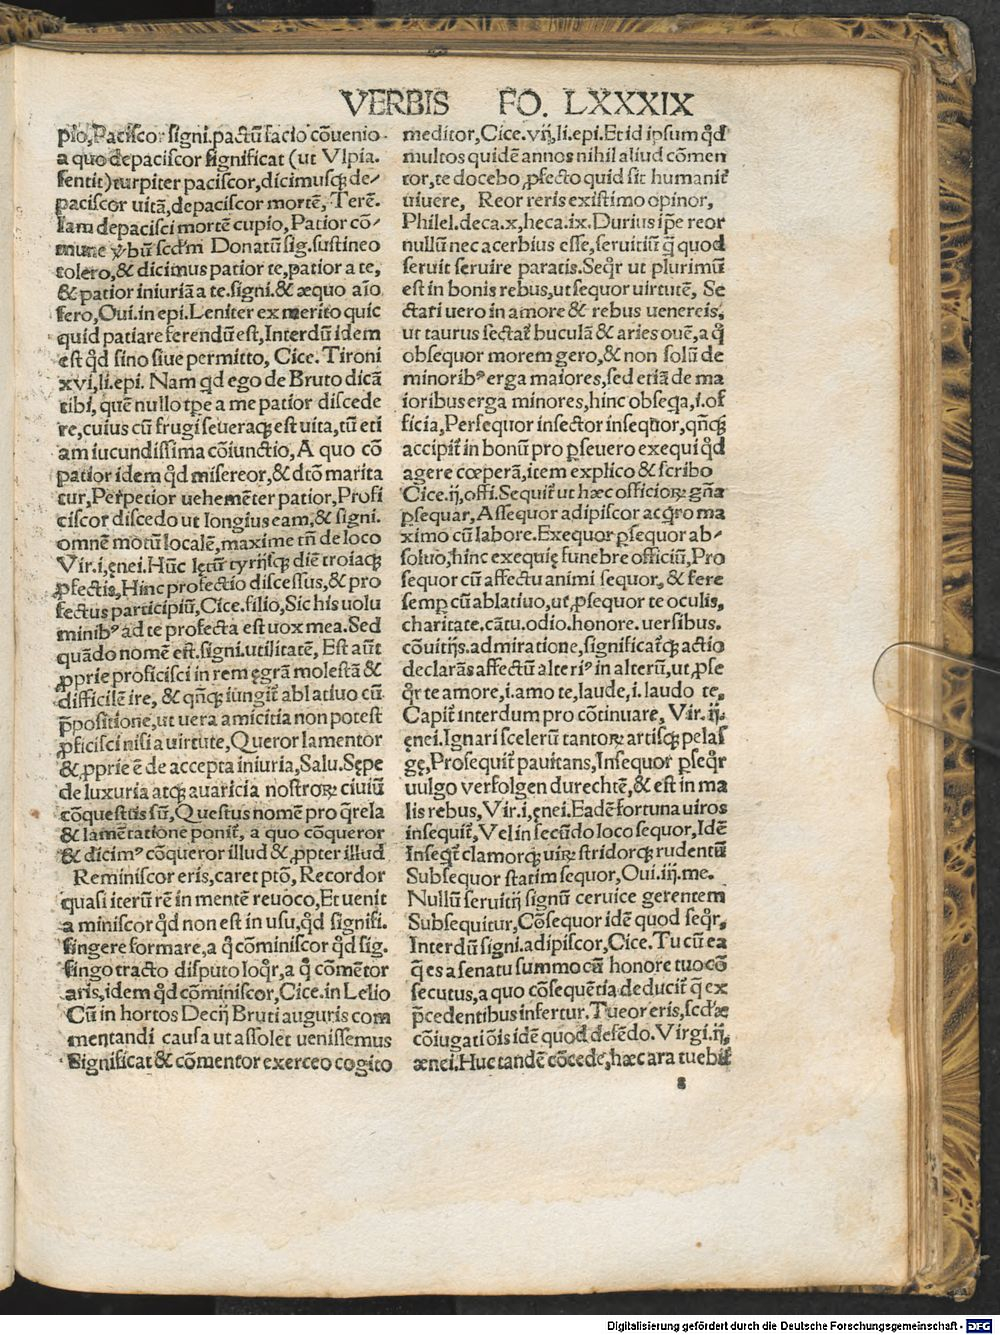 VERBIS FO. LXXXIX
pio, Paciscor signi. pactū facio cōuenio
a quo depaciscor significat (ut Vlpia.
sentit) turpiter paciscor, dicimusq; de-
paciscor uitā, depaciscor mortē, Terē.
Iam depacisci mortē cupio, Patior cō-
mune ꝟbū scd'm Donatū sig. sustineo
tolero, & dicimus patior te, patior a te,
& patior iniuriā a te. signi. & æquo aīo
fero, Oui. in epi. Leniter ex merito quic
quid patiare ferendū est, Interdū idem
est qd̄ sino siue permitto, Cice. Tironi
xvi, li. epi. Nam qd ego de Bruto dicā
tibi, quē nullo tp̄e a me patior discede
re, cuius cū frugi seueraq; est uita, tū eti
am iucundissima cōiunctio, A quo cō
patior idem qd̄ misereor, & dc̄to marita
tur, Perpetior uehemēter patior, Profi
ciscor discedo ut longius eam, & signi.
omnē motū localē, maxime tn̄ de loco
Vir. i, ęnei. Hūc lętū tyrijsq; diē troiaq;
ꝓfectis, Hinc profectio discessus, & pro
fectus participiū, Cice. filio, Sic his uolu
minibꝰ ad te profecta est uox mea. Sed
quādo nomē est. signi. utilitatē, Est aūt
ꝓprie proficisci in rem ęgrā molestā &
difficilē ire, & qn̄q; iungit̄ ablatiuo cū
p̄positione, ut uera amicitia non potest
ꝓficisci nisi a uirtute, Queror lamentor
& ꝓprie ē de accepta iniuria, Salu. Sępe
de luxuria atq; auaricia nostroꝝ ciuiū
cōquestus sū, Questus nomē pro q̄rela
& lamētatione ponit̄, a quo cōqueror
& dicimꝰ cōqueror illud & ꝓpter illud
Reminiscor eris, caret ptō, Recordor
quasi iterū rē in mentē reuoco, Et uenit
a miniscor qd̄ non est in usu, qd̄ signifi.
fingere formare, a q̄ cōminiscor qd̄ sig.
fingo tracto disputo loq̄r, a q̄ cōmētor
aris, idem qd̄ cōminiscor, Cice. in Lelio
Cū in hortos Decij Bruti auguris com
mentandi causa ut assolet uenissemus
Significat & cōmentor exerceo cogito
meditor, Cice. vij, li. epi. Et id ipsum qd̄
multos quidē annos nihil aliud cōmen
tor, te docebo ꝓfecto quid sit humanit̄
uiuere, Reor reris existimo opinor,
Philel. deca. x, heca. ix. Durius ip̄e reor
nullū nec acerbius esse, seruitiū q̄ quod
seruit seruire paratis. Seq̄r ut plurimū
est in bonis rebus, ut sequor uirtutē, Se
ctari uero in amore & rebus uenereis,
ut taurus sectat̄ buculā & aries ouē, a q̄
obsequor morem gero, & non solū de
minoribꝰ erga maiores, sed etiā de ma
ioribus erga minores, hinc obseqa, i. of
ficia, Persequor insector insequor, qn̄q;
accipit̄ in bonū pro ꝑseuero exequi qd̄
agere cœperā, item explico & scribo
Cice. ij, offi. Sequit̄ ut hæc officioꝝ gn̄a
ꝑsequar, Assequor adipiscor acq̄ro ma
ximo cū labore. Exequor ꝑsequor ab-
soluo, hinc exequię funebre officiū, Pro
sequor cū affectu animi sequor, & fere
semꝑ cū ablatiuo, ut ꝓsequor te oculis,
charitate. cātu. odio. honore. uersibus.
cōuitijs. admiratione, significat̄q; actio
declarās affectū alteriꝰ in alterū, ut ꝓse
q̄r te amore, i. amo te, laude, i. laudo te,
Capit̄ interdum pro cōtinuare, Vir. ij.
ęnei. Ignari scelerū tantoꝝ artisq; pelas
gę, Prosequit̄ pauitans, Insequor ꝑseq̄r
uulgo verfolgen durechtē, & est in ma
lis rebus, Vir. i, ęnei. Eadē fortuna uiros
insequit̄, Vel in secūdo loco sequor, Idē
Inseqt̄ clamorq; uiꝝ stridorq; rudentū
Subsequor statim sequor, Oui. iij. me.
Nullū seruitij signū ceruice gerentem
Subsequitur, Cōsequor idē quod seq̄r,
Interdū signi. adipiscor, Cice. Tu cū ea
q̄ es a senatu summo cū honore tuo cō
secutus, a quo cōsequētia deducit̄ q̄ ex
p̄cedentibus infertur. Tueor eris, scd'æ
cōiugatiōis idē quod defēdo. Virgi. ij,
ænei. Huc tandē cōcede, hæc ara tuebit̄
s
Digitalisierung gefördert durch die Deutsche Forschungsgemeinschaft - DFG